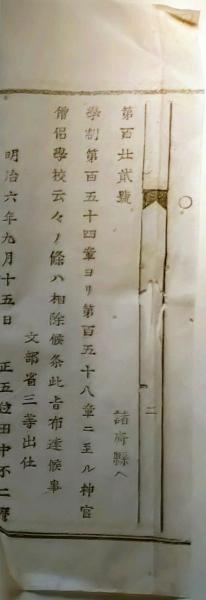 二
第百廿貳號
諸府縣ヘ
學制第百五十四章ヨリ第百五十八章ニ至ル神官
僧侶學校云々ノ條ハ相除候条此旨布達候事
文部省三等出仕
明治六年九月十五日 正五位田中不二麿